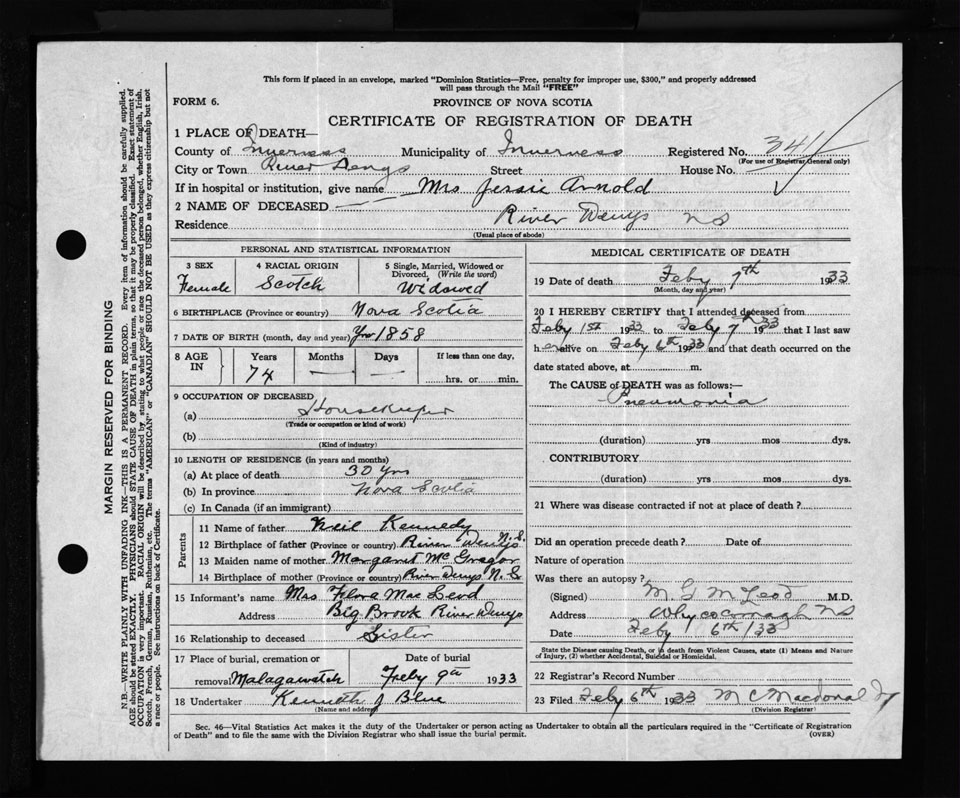 This form if placed in an envelope, marked "Dominion Statistics—Free, penalty for improper use, $300," and properly addressed
will pass through the Mail "FREE"
FORM 6.
PROVINCE OF NOVA SCOTIA
CERTIFICATE OF REGISTRATION OF DEATH
1 PLACE OF DEATH—
County of Inverness Municipality of Inverness Registered No. 341
(For use of Registrar General only)
City or Town River Denys Street House No.
If in hospital or institution, give name Mrs Jessie Arnold
2 NAME OF DECEASED
Residence River Denys NS
(Usual place of abode)
PERSONAL AND STATISTICAL INFORMATION
3 SEX Female
4 RACIAL ORIGIN Scotch
5 Single, Married, Widowed or Divorced, (Write the word) Widowed
6 BIRTHPLACE (Province or country) Nova Scotia
7 DATE OF BIRTH (month, day and year) Yr 1858
8 AGE IN Years Months Days If less than one day,
74 — — hrs. or min.
9 OCCUPATION OF DECEASED
(a) Housekeeper
(Trade or occupation or kind of work)
(b)
(Kind of industry)
10 LENGTH OF RESIDENCE (in years and months)
(a) At place of death 30 Yrs
(b) In province Nova Scotia
(c) In Canada (if an immigrant)
Parents
11 Name of father Neil Kennedy
12 Birthplace of father (Province or country) River Denys N.S.
13 Maiden name of mother Margaret McGregor
14 Birthplace of mother (Province or country) River Denys N.S
15 Informant's name Mrs Flora MacLeod
Address Big Brook River Denys
16 Relationship to deceased Sister
17 Place of burial, cremation or removal Malagawatch
Date of burial Feby 9th 1933
18 Undertaker Kenneth J Blue
(Name and address)
MEDICAL CERTIFICATE OF DEATH
19 Date of death Feby 7th 1933
(Month, day and year)
20 I HEREBY CERTIFY that I attended deceased from
Feby 1st 1933 to Feby 7th 1933 that I last saw
her alive on Feby 6th 1933 and that death occurred on the
date stated above, at m.
The CAUSE of DEATH was as follows:—
Pneumonia
(duration) yrs mos dys.
CONTRIBUTORY
(duration) yrs mos dys.
21 Where was disease contracted if not at place of death?
Did an operation precede death? Date of
Nature of operation
Was there an autopsy?
(Signed) M. G McLeod M.D.
Address Whycocomagh NS
Date Feby 6th/33
State the Disease causing Death, or in death from Violent Causes, state (1) Means and Nature
of Injury, (2) whether Accidental, Suicidal or Homicidal.
22 Registrar's Record Number
23 Filed Feby 6th 1933 M C Macdonald
(Division Registrar)
Sec. 46—Vital Statistics Act makes it the duty of the Undertaker or person acting as Undertaker to obtain all the particulars required in the "Certificate of Registration
of Death" and to file the same with the Division Registrar who shall issue the burial permit. (OVER)
MARGIN RESERVED FOR BINDING
N.B.—WRITE PLAINLY WITH UNFADING INK—THIS IS A PERMANENT RECORD. Every item of information should be carefully supplied.
AGE should be stated EXACTLY. PHYSICIANS should STATE CAUSE OF DEATH in plain terms, so that it may be properly classified. Exact statement of
OCCUPATION is very important. RACIAL ORIGIN will be described by stating to what people or race the deceased person belonged, whether English, Irish,
Scotch, French, German, Russian, Ruthenian, etc. The terms "AMERICAN" or "CANADIAN" SHOULD NOT BE USED as they express citizenship but not
a race or people. See instructions on back of Certificate.